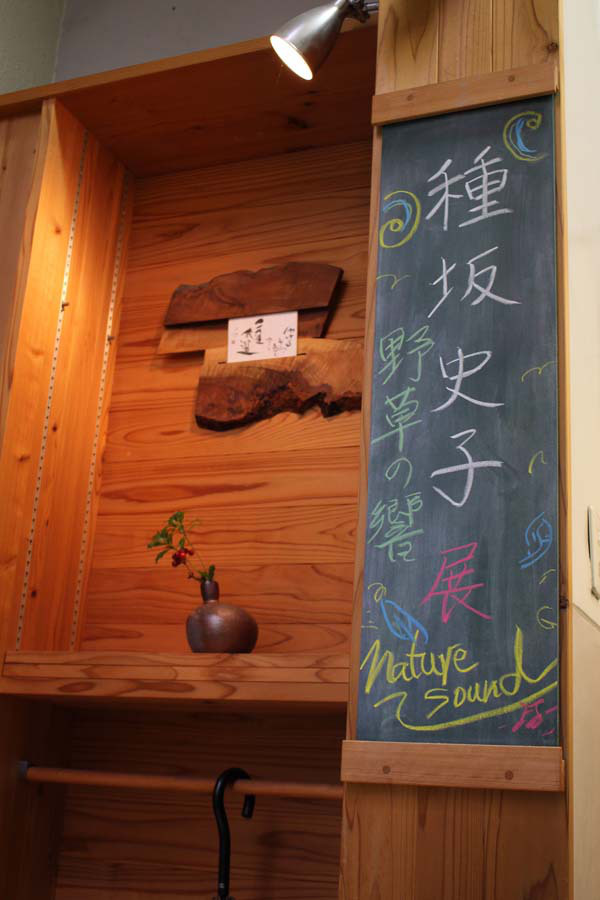 種坂史子展
野草の響
nature
sound